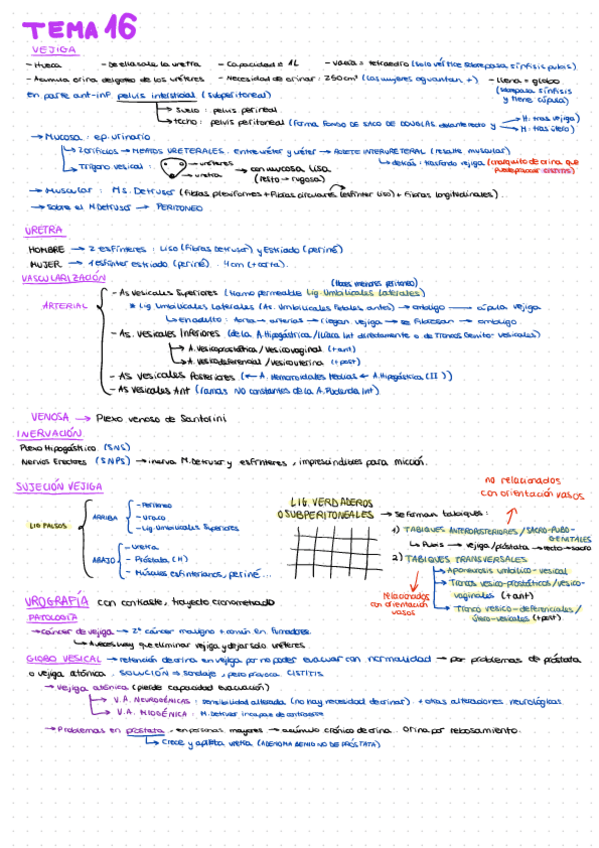 TEMA 16
VEJIGA
- Hueca - De ella sale la uretra - Capacidad ≤ 1L - vacía = tetraedro (solo vértice sobrepasa sínfisis pubis)
- Acumula orina del gasto de los uréteres - Necesidad de orinar: 250cm³ (Las mujeres aguantan +) - llena = globo (sobrepasa sínfisis y tiene cúpula)
en parte ant-inf pelvis intersticial (subperitoneal)
→ suelo: pelvis perineal
→ techo: pelvis peritoneal (forma FONDO DE SACO DE DOUGLAS delante recto y → H: tras vejiga) → M: tras útero)
→ Mucosa: ep. urinario
→ 2 orificios → MEATOS URETERALES. entre uréter y uréter → RODETE INTERURETERAL (resalte muscular)
→ detrás: trasfondo vejiga (charquito de orina que puede provocar CISTITIS)
→ Trígono vesical: → uréteres → uretra → con mucosa lisa (resto → rugosa)
→ Muscular: Ms. Detrusor (fibras plexiformes + Fibras circulares (esfínter liso) + Fibras longitudinales).
→ sobre el M.Detrusor → PERITONEO
URETRA
HOMBRE → 2 esfínteres: Liso (Fibras Detrusor) y Estriado (periné)
MUJER → 1 esfínter estriado (periné). 4cm (+ corta).
VASCULARIZACIÓN
ARTERIAL
- As Vesicales Superiores (tramo permeable Lig. Umbilicales Laterales)
* Lig Umbilicales Laterales (As. Umbilicales Fetales antes) → ombligo → cúpula vejiga
→ en adulto: tono → arterias → riegan vejiga → se fibrosan → ombligo
- As. Vesicales Inferiores (de la A.Hipogástrica/Iliaca Int directamente o de Troncos Genito-vesicales)
→ A. Vesicoprostática/Vesicovaginal (+ant)
→ A. Vesicodeferencial/Vesicouterina (+post)
- As Vesicales Posteriores (← A. Hemorroidales Medias ← A.Hipogástrica (II))
- As Vesicales Ant (ramas NO constantes de la A. Pudenda Int)
VENOSA → Plexo venoso de Santorini
INERVACIÓN
Plexo Hipogástrico (SNS)
Nervios Erectores (SNPS) → inerva M.Detrusor y esfínteres, imprescindibles para micción.
SUJECIÓN VEJIGA
LIG FALSOS
ARRIBA
- Peritoneo
- Uraco
- Lig. Umbilicales Superiores
ABAJO
- Uretra
- Próstata (H)
- Músculos esfinterianos, periné...
LIG. VERDADEROS O SUBPERITONEALES → se forman tabiques:
no relacionados con orientación vasos
1) TABIQUES ANTEROPOSTERIORES / SACRO-PUBO-GENITALES
→ Pubis → vejiga/próstata → recto → sacro
2) TABIQUES TRANSVERSALES
→ Aponeurosis umbilico-vesical
→ Troncos vesico-prostáticos/vesico-vaginales (+ant)
→ Tronco vesico-deferenciales/útero-vesicales (+post)
relacionados con orientación vasos
UROGRAFÍA con contraste, trayecto cronometrado
PATOLOGÍA
→ cáncer de vejiga → 2º cáncer maligno + común en fumadores.
→ A veces hay que eliminar vejiga y dejar solo uréteres
GLOBO VESICAL → retención de orina en vejiga por no poder evacuar con normalidad → por problemas de próstata
o vejiga atónica. SOLUCIÓN ⇒ sondaje, pero provoca CISTITIS
→ vejiga atónica (pierde capacidad evacuación)
→ V.A. NEUROGÉNICAS: sensibilidad alterada (no hay necesidad de orinar) + otras alteraciones neurológicas.
→ V.A. MIOGÉNICA: M. Detrusor incapaz de contraerse
→ Problemas en próstata, en personas mayores → acúmulo crónico de orina. Orina por rebosamiento.
→ Crece y aplasta uretra (ADENOMA BENIGNO DE PRÓSTATA)